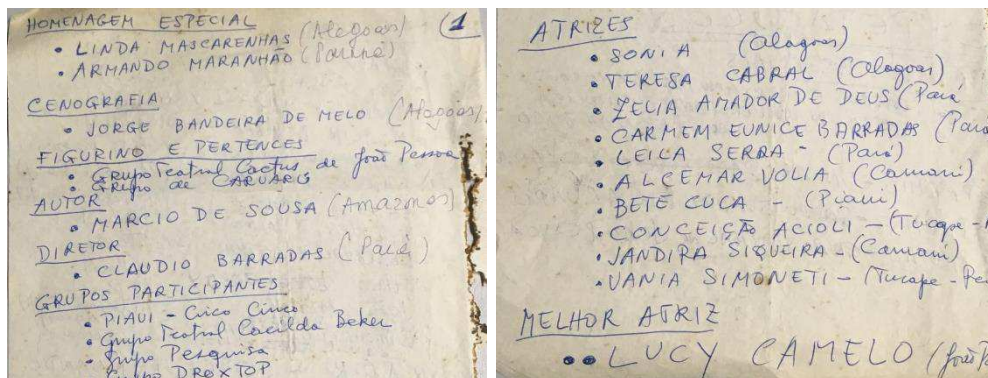 HOMENAGEM ESPECIAL (1
• LINDA MASCARENHAS (Alagoas)
• ARMANDO MARANHÃO (Paraná)
CENOGRAFIA
• JORGE BANDEIRA DE MELO (Alagoas)
FIGURINO E PERTENCES
• Grupo Teatral Cactus de João Pessoa
• Grupo de CARUARU
AUTOR
• MARCIO DE SOUSA (Amazonas)
DIRETOR
• CLAUDIO BARRADAS (Pará)
GRUPOS PARTICIPANTES
• PIAUI - Circo Cinco
• Grupo Teatral Cacilda Beker
• Grupo Pesquisa
Grupo DROXTOP
ATRIZES
• SONIA (Alagoas)
• TERESA CABRAL (Alagoas)
• ZELIA AMADOR DE DEUS (Pará
• CARMEM EUNICE BARRADAS (Pará
• LEILA SERRA - (Pará)
• ALCEMAR VOLIA (Camani)
• BETE CUCA - (Piaui)
• CONCEIÇÃO ACIOLI - (Tucape -
• JANDIRA SIQUEIRA - (Camani)
• VANIA SIMONETI - (Tucape - Pe
MELHOR ATRIZ
•• LUCY CAMELO (João P